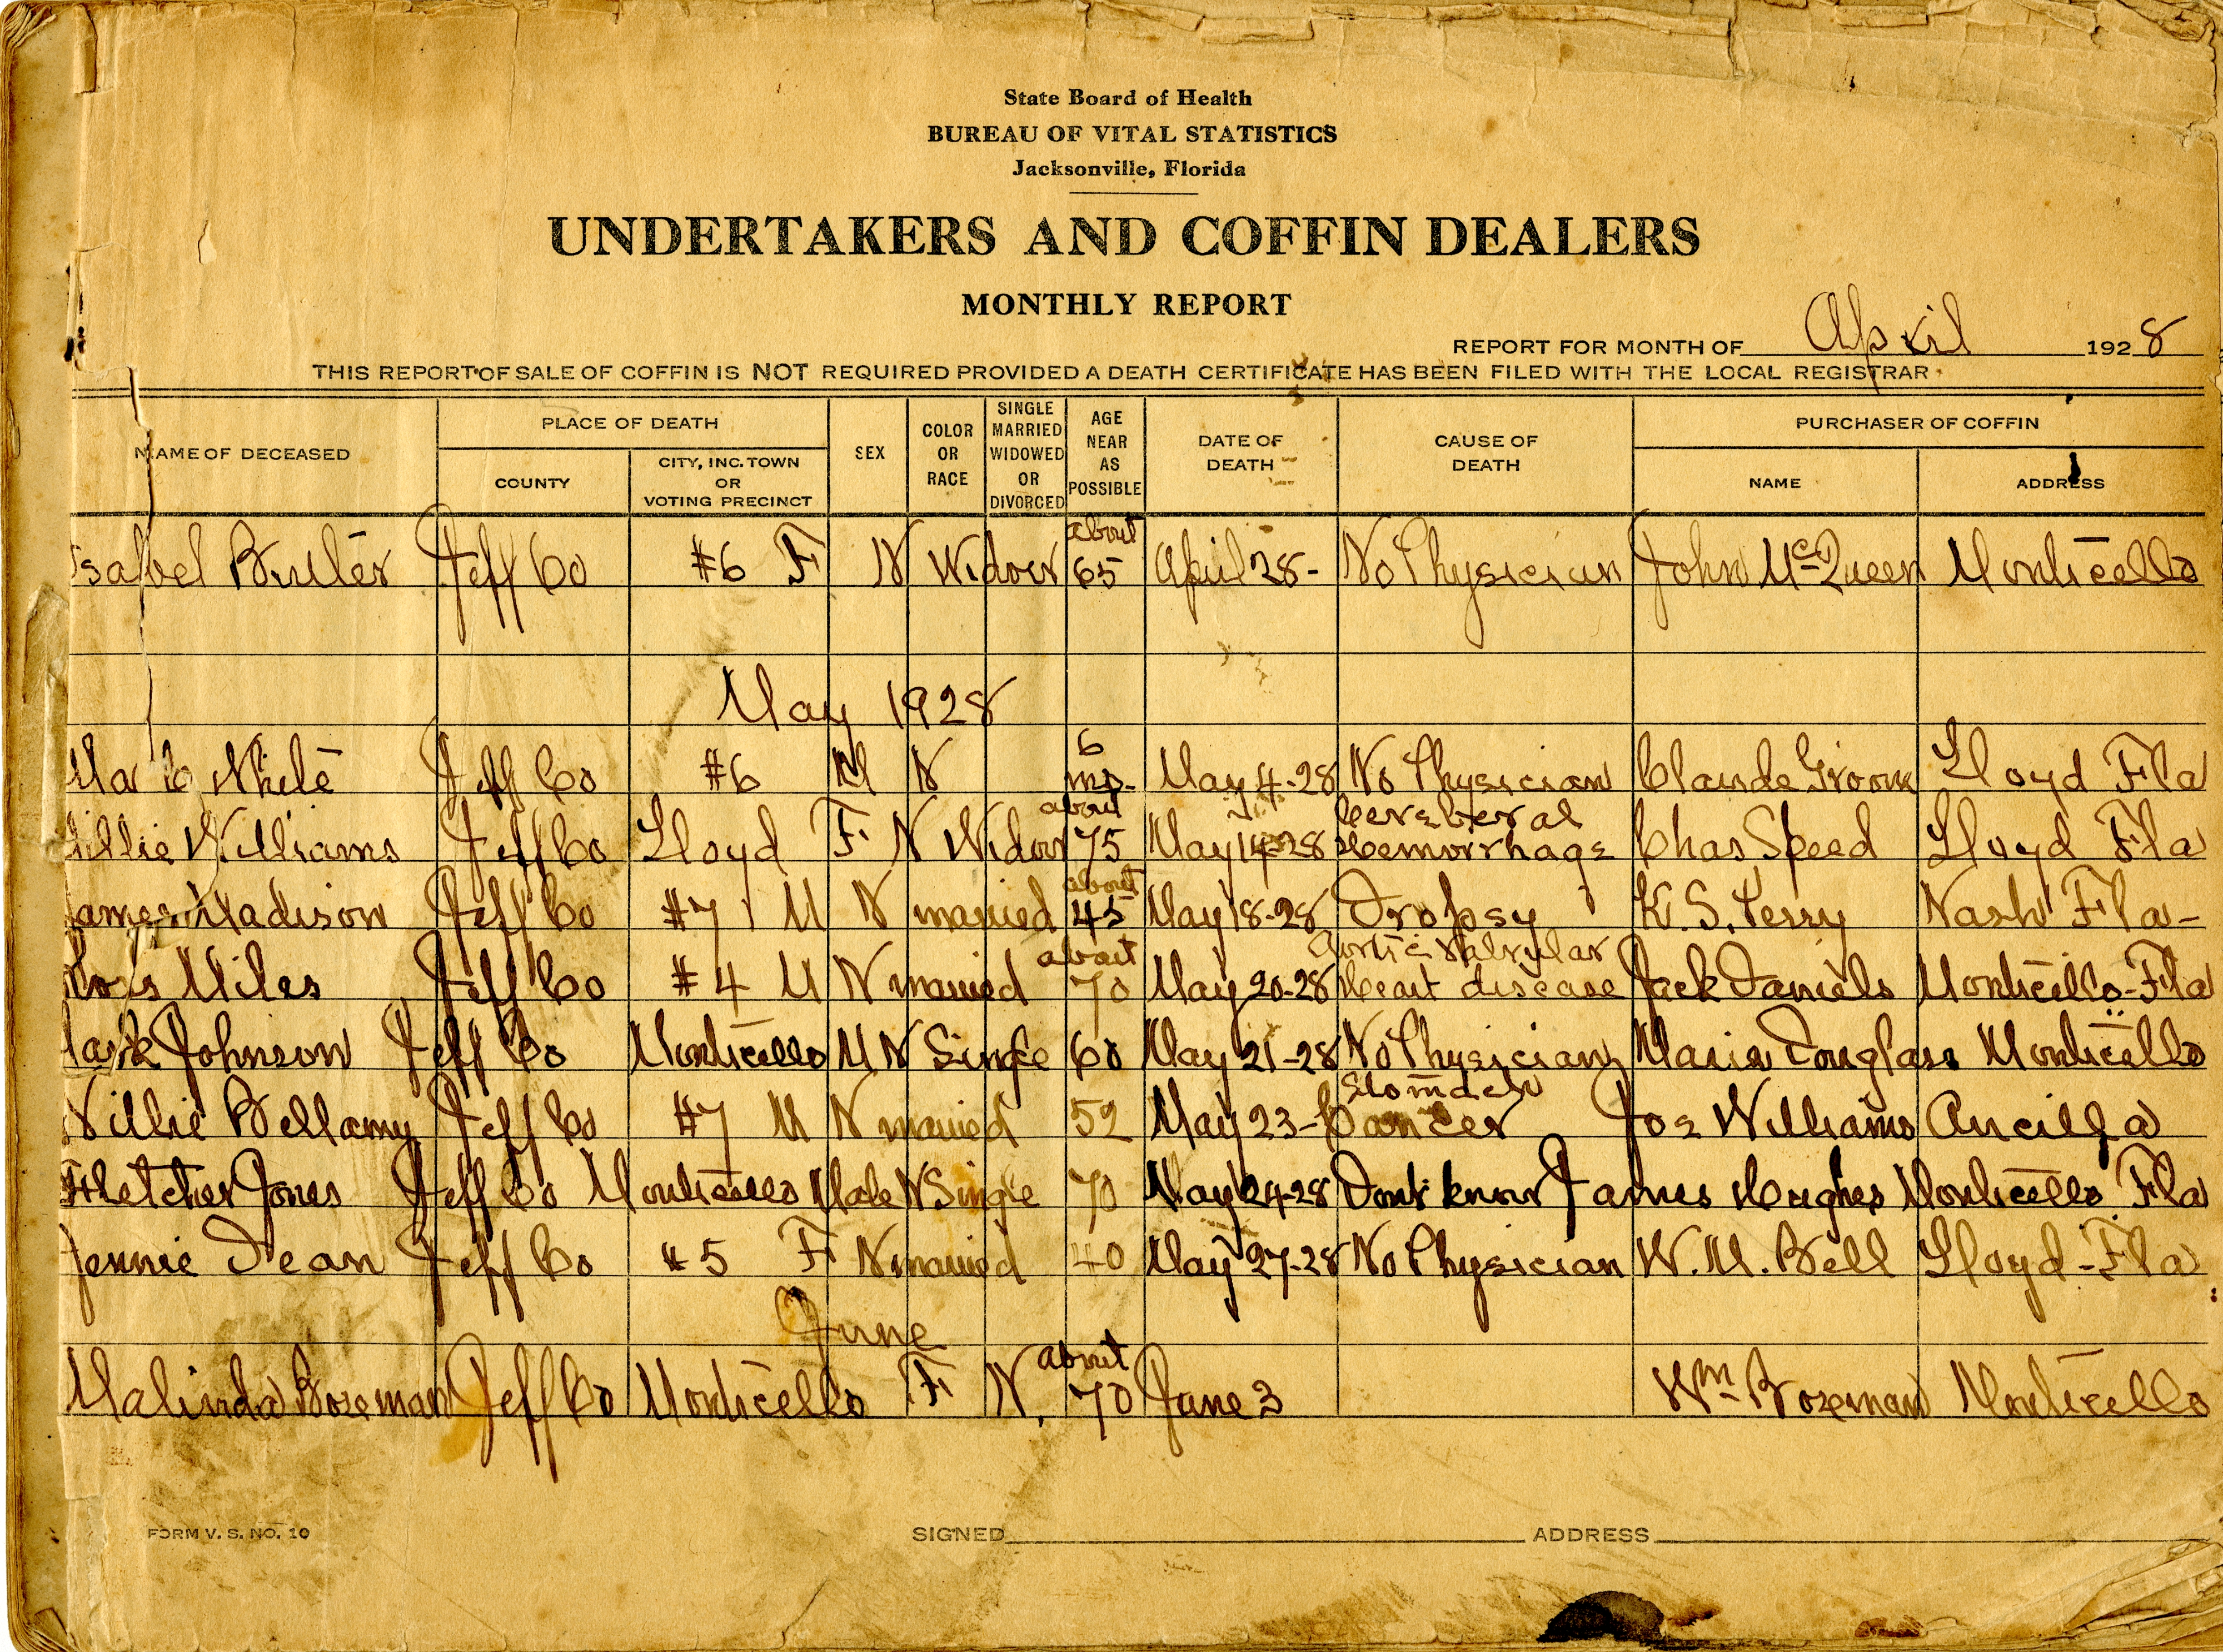 State Board of Health
BUREAU OF VITAL STATISTICS
Jacksonville, Florida
UNDERTAKERS AND COFFIN DEALERS
MONTHLY REPORT
REPORT FOR MONTH OF April 1928
THIS REPORT OF SALE OF COFFIN IS NOT REQUIRED PROVIDED A DEATH CERTIFICATE HAS BEEN FILED WITH THE LOCAL REGISTRAR
NAME OF DECEASED PLACE OF DEATH COUNTY CITY, INC. TOWN OR VOTING PRECINCT SEX COLOR OR RACE SINGLE MARRIED WIDOWED OR DIVORCED AGE NEAR AS POSSIBLE DATE OF DEATH CAUSE OF DEATH PURCHASER OF COFFIN NAME ADDRESS
Isabel Butler Jeff Co #6 F N Widow about 65 April 28- No Physician John McQueen Monticello
May 1928
White Jeff Co #6 M N 6 mo. May 4-28 No Physician Claude Groom Lloyd Fla
Williams Jeff Co Lloyd F N Widow about 75 May 14-28 Cerebral Hemorrhage Chas Speed Lloyd Fla
James Madison Jeff Co #7 M N married about 45 May 18-28 Dropsy K. S. Perry Nash Fla-
Miles Jeff Co #4 M N married about 70 May 20-28 Aortic Valvular Heart disease Jack Daniels Monticello-Fla
Johnson Jeff Co Monticello M N Single 60 May 21-28 No Physician Maria Douglass Monticello
Willie Bellamy Jeff Co #7 M N married 52 May 23- Stomach Cancer Joe Williams Aucilla
Fletcher Jones Jeff Co Monticello Male N Single 70 May 24-28 Dont know James Hughes Monticello Fla
Jennie Dean Jeff Co #5 F N married 40 May 27-28 No Physician W. M. Bell Lloyd-Fla
June
Malinda Bozeman Jeff Co Monticello F N. about 70 June 3 Wm Bozeman Monticello
FORM V. S. NO. 10 SIGNED ADDRESS